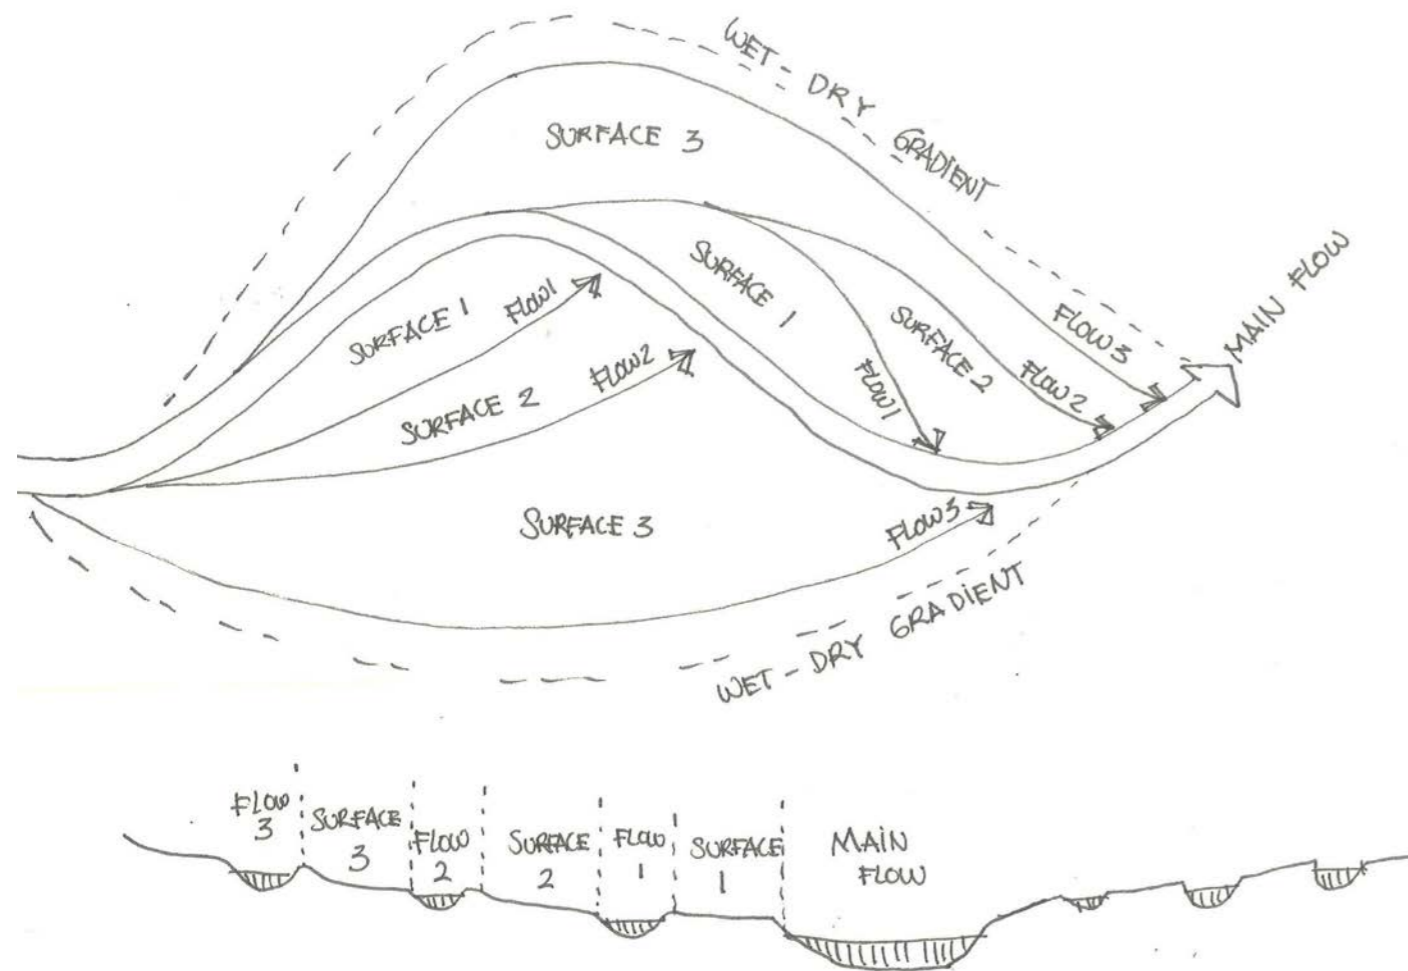 WET - DRY GRADIENT
SURFACE 3
SURFACE 1
FLOW1
SURFACE 1
SURFACE 2
FLOW2
SURFACE 2
FLOW1
FLOW2
FLOW3
MAIN FLOW
SURFACE 3
FLOW3
WET - DRY GRADIENT
FLOW
3
SURFACE
3
FLOW
2
SURFACE
2
FLOW
1
SURFACE
1
MAIN
FLOW